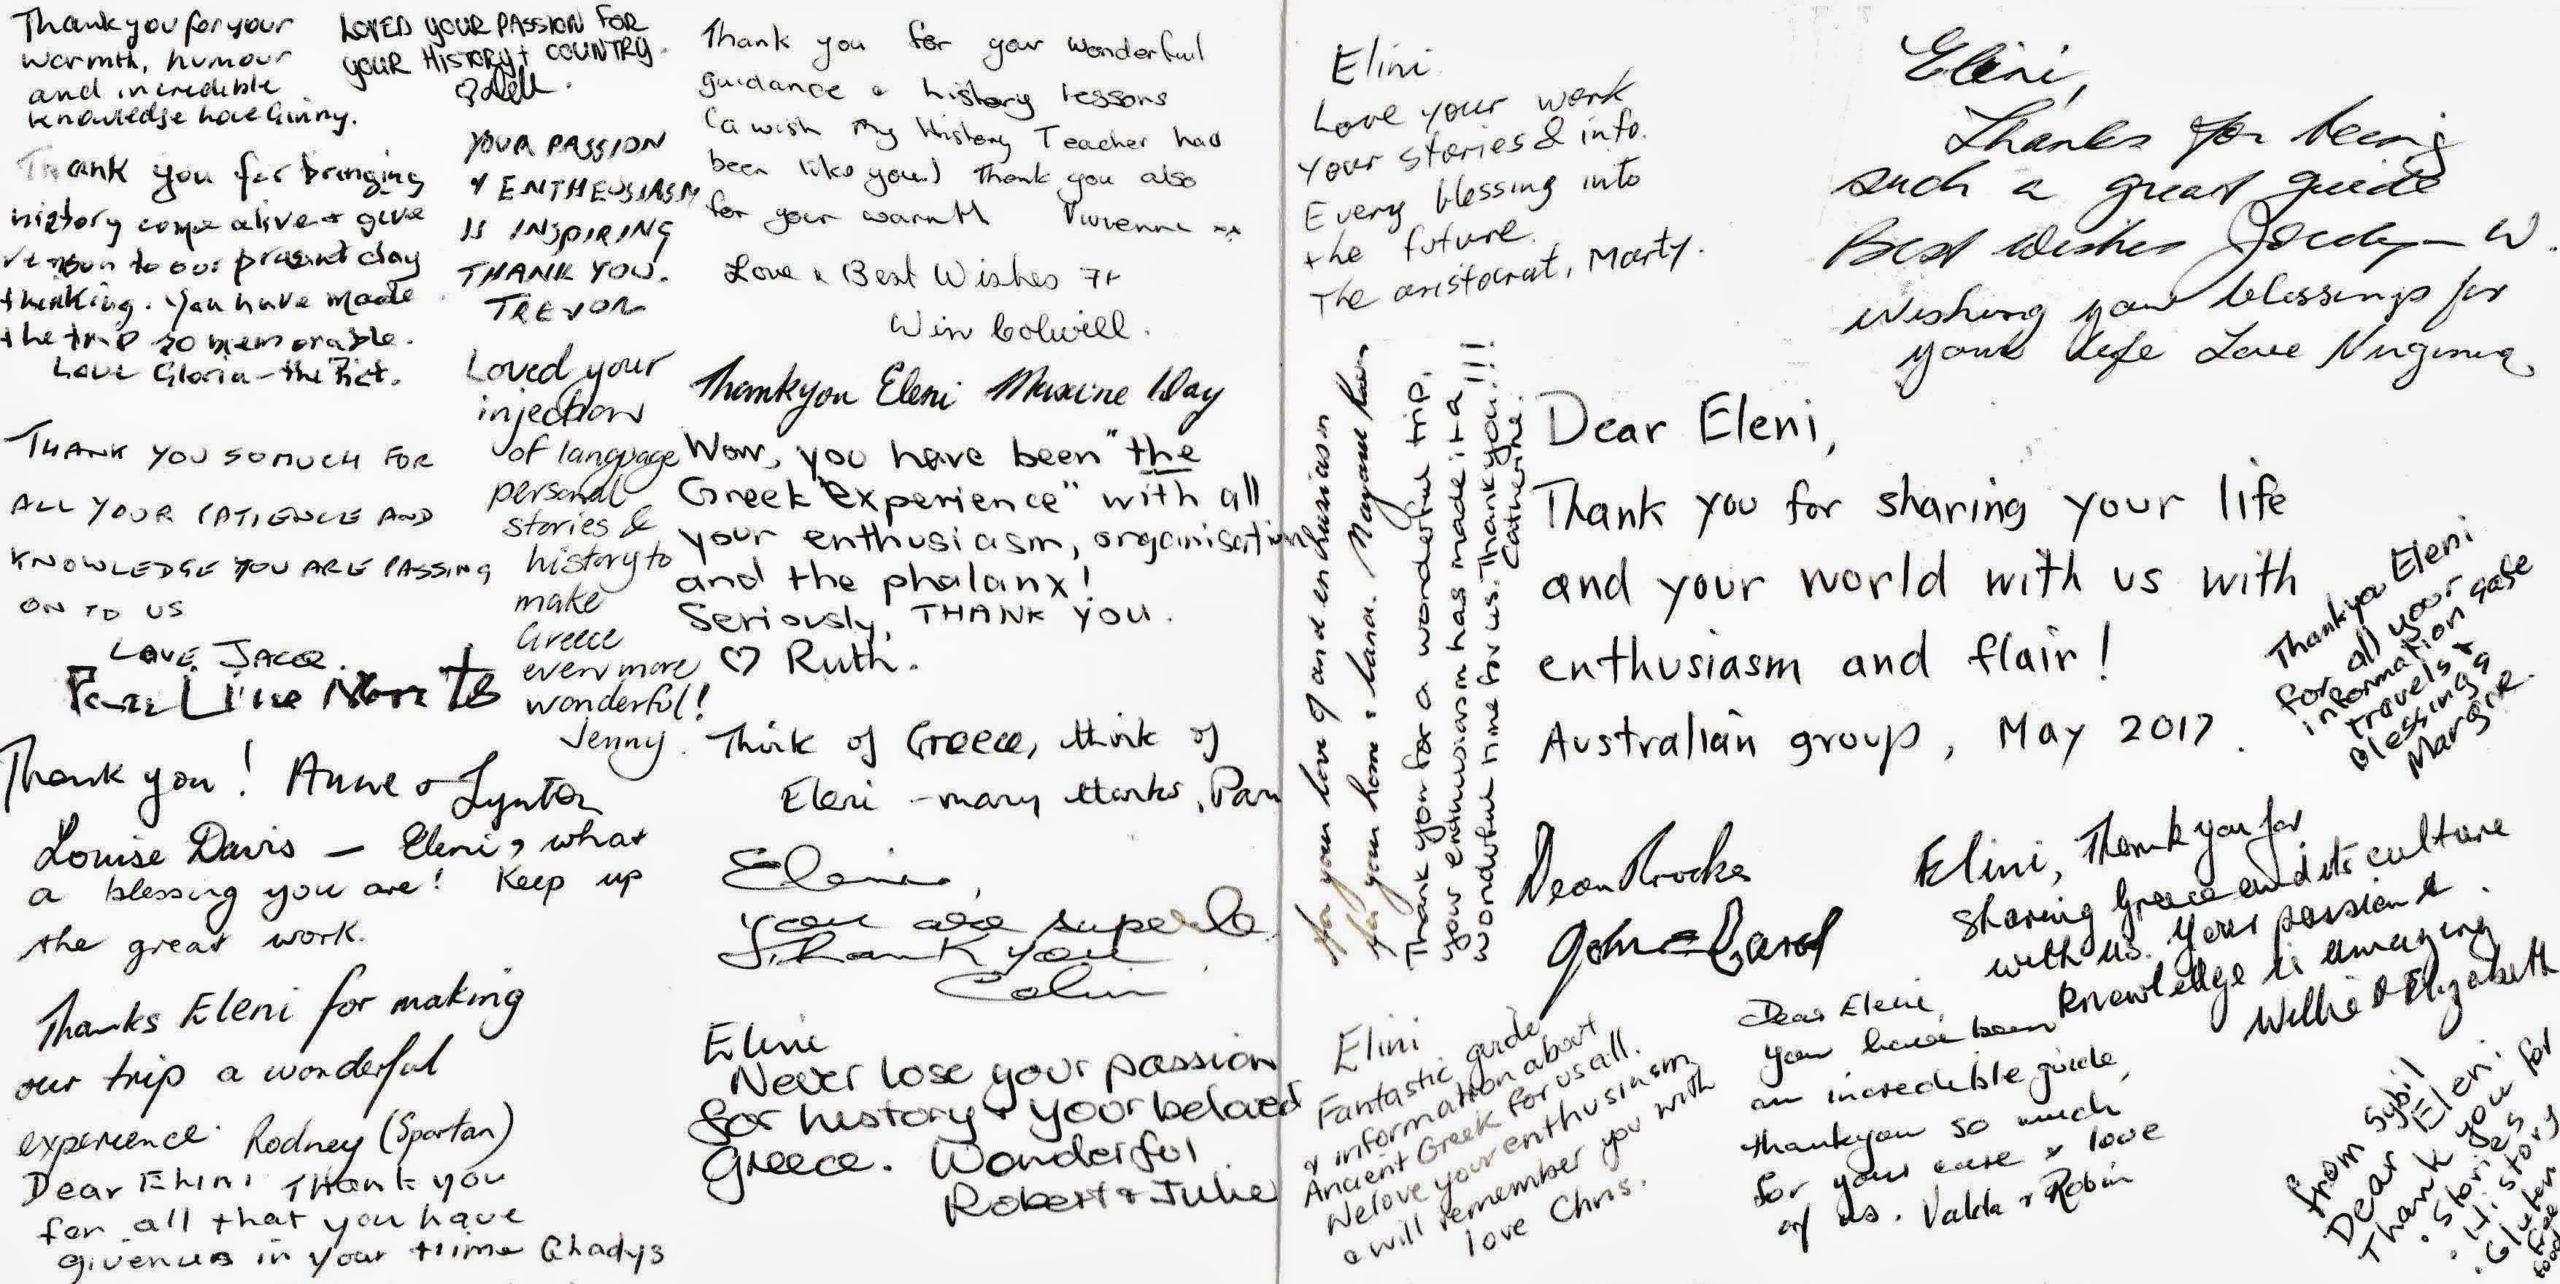 Thank you for your
warmth, humour
and incredible
knowledge love Ginny.
LOVED YOUR PASSION FOR
YOUR HISTORY + COUNTRY.
♡ Dell.
Thank you for bringing
history come alive + give
to our present day
thinking. You have made
the trip so memorable.
Love Gloria - the Pict.
YOUR PASSION
& ENTHEUSIASM
IS INSPIRING
THANK YOU.
TREVOR
THANK YOU SO MUCH FOR
ALL YOUR PATIENCE AND
KNOWLEDGE YOU ARE PASSING
ON TO US
LOVE JACQ.
Loved your
injection
of language
personal
stories &
history to
make
Greece
even more
wonderful!
Jenny.
Thank you! Anne & Lynton
Louise Davis — Eleni, what
a blessing you are! Keep up
the great work.
Thanks Eleni for making
our trip a wonderful
experience. Rodney (Spartan)
Dear Ehini Thank you
for all that you have
given us in your time Ghadys
Thank you for your wonderful
guidance & history lessons
(a wish my History Teacher had
been like you!) Thank you also
for your warmth Vivienne xx
Love & Best Wishes
Win Colwill.
Thankyou Eleni Maxine Day
Wow, you have been "the
Greek experience" with all
your enthusiasm, organisation
and the phalanx!
Seriously, THANK YOU.
♡ Ruth.
Think of Greece, think of
Eleni - many thanks, Pam
Eleni,
you are superb
Thank you
Colin
Elini
Never lose your passion
for history & your beloved
Greece. Wonderful
Robert & Julie
Elini
Love your work
your stories & info.
Every blessing into
the future.
The aristocrat, Marty.
Elini,
Thanks for being
such a great guide
Best Wishes Jocelyn W.
Wishing you blessings for
your life Love Virginia
For your love of and enthusiasm
for your home & land.
Thank you for a wonderful trip.
Your enthusiasm has made it a
wonderful time for us. Thankyou!!!
Catherine.
Dear Eleni,
Thank you for sharing your life
and your world with us with
enthusiasm and flair!
Australian group, May 2017.
Thankyou Eleni
for all your
information
travels & safe
Blessings
Margie.
Dean Brookes
John & Carol
Elini, Thank you for
sharing Greece and its culture
with us. Your passion &
knowledge is amazing
Willie & Elizabeth
Elini
Fantastic guide
& information about
Ancient Greek for us all.
We love your enthusiasm
& will remember you with
love Chris.
Dear Eleni,
you have been
an incredible guide
thankyou so much
for your care & love
of us. Valda & Robin
from Sybil
Dear Eleni.
Thank you for
. Stories
. History
. Gluten
free
food